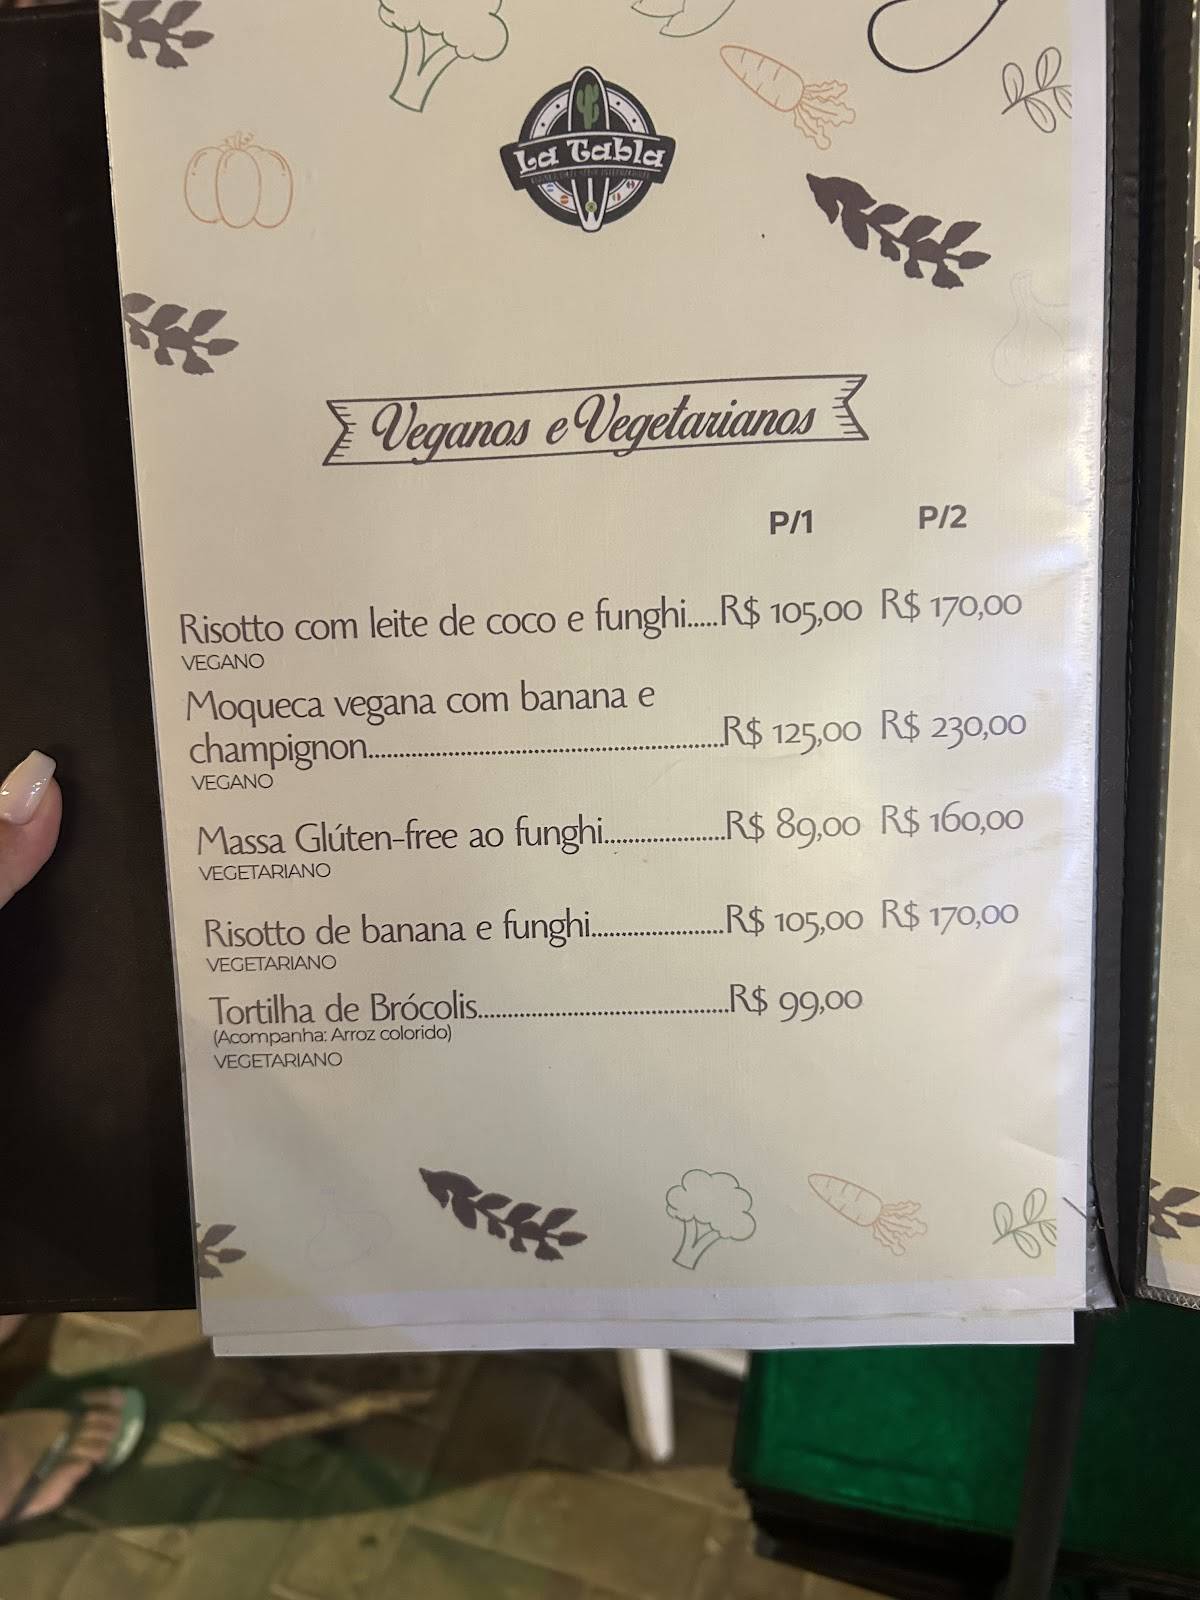 La Tabla
Veganos e Vegetarianos
P/1 P/2
Risotto com leite de coco e funghi.....R$ 105,00 R$ 170,00
VEGANO
Moqueca vegana com banana e
champignon..........................................................R$ 125,00 R$ 230,00
VEGANO
Massa Glúten-free ao funghi....................R$ 89,00 R$ 160,00
VEGETARIANO
Risotto de banana e funghi......................R$ 105,00 R$ 170,00
VEGETARIANO
Tortilha de Brócolis.........................................R$ 99,00
(Acompanha: Arroz colorido)
VEGETARIANO